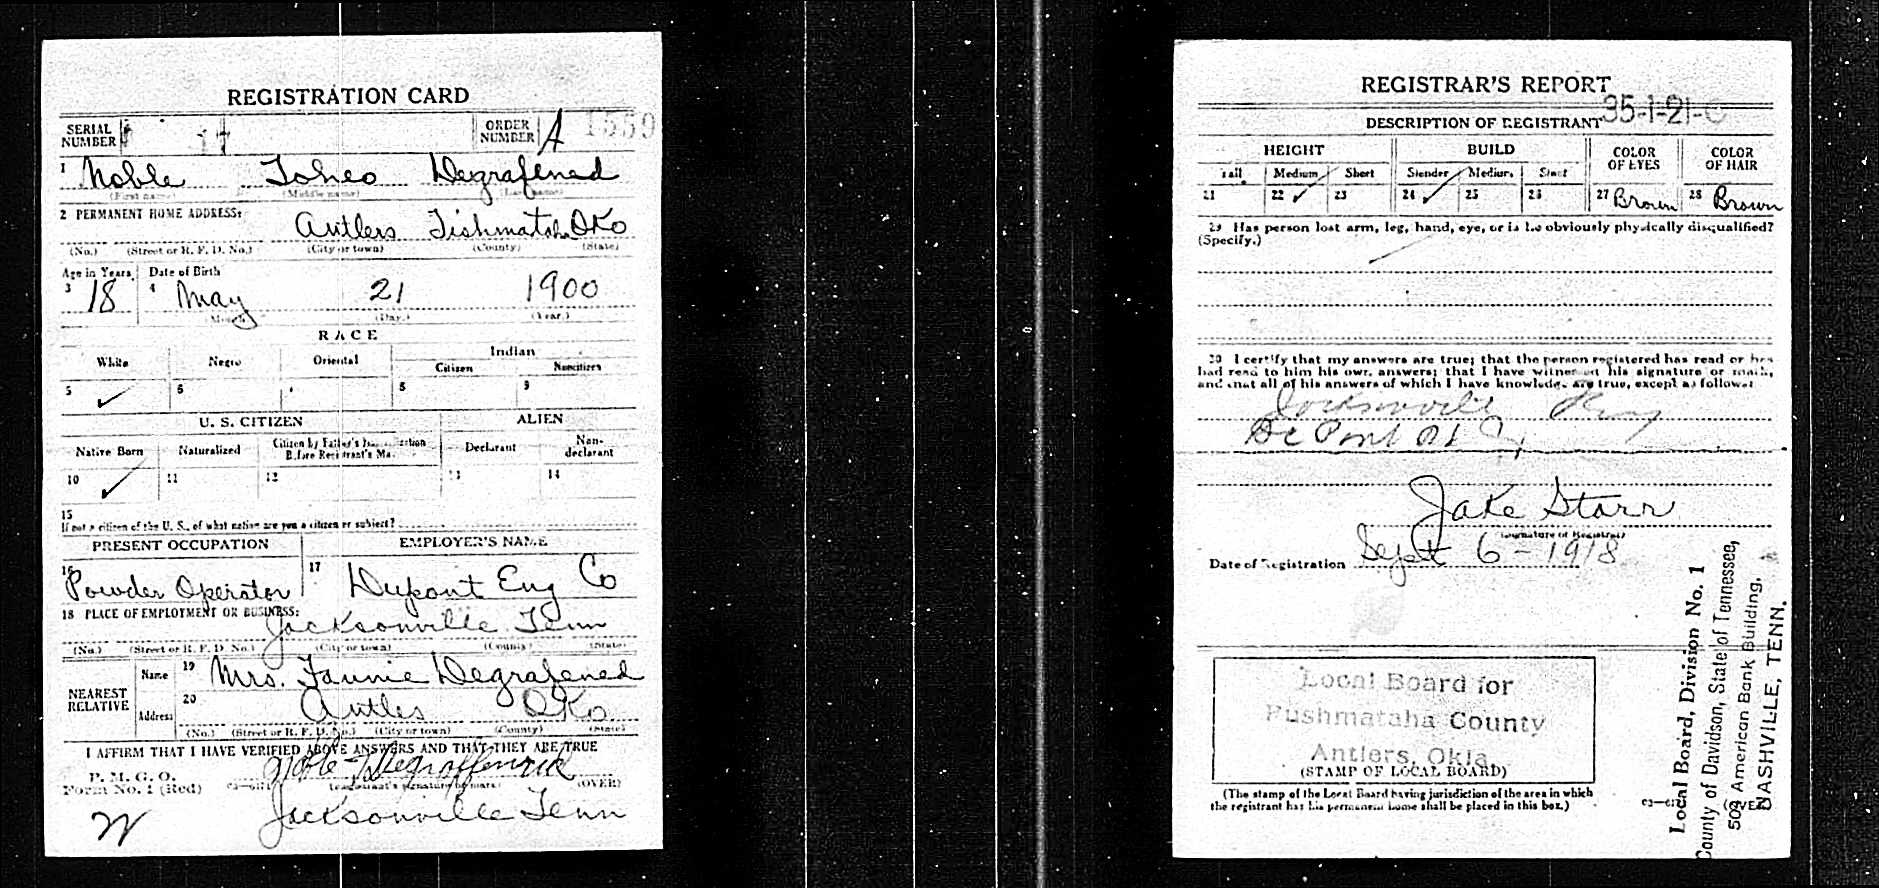 REGISTRATION CARD
SERIAL NUMBER 17 ORDER NUMBER A 1559
1 Noble Toheo Degrafened
(First name) (Middle name) (Last name)
2 PERMANENT HOME ADDRESS:
Antlers OKo
(No.) (Street or R. F. D. No.) (City or town) (County) (State)
Age in Years Date of Birth
3 18 4 May 21 1900
(Month) (Day.) (Year.)
RACE
White Negro Oriental Indian
Citizen Noncitizen
5 ✓ 6 8 9
U. S. CITIZEN ALIEN
Native Born Naturalized Citizen by Father's Before Registrant's Declarant Non-declarant
10 ✓ 11 12 13 14
15
If not a citizen of the U. S., of what nation are you a citizen or subject?
PRESENT OCCUPATION EMPLOYER'S NAME
16 Powder Operator 17 Dupont Eng Co
18 PLACE OF EMPLOYMENT OR BUSINESS:
Jacksonville Tenn
(No.) (Street or R. F. D. No.) (City or town) (County) (State)
NEAREST RELATIVE
Name 19 Mrs. Fannie Degrafened
Address 20 Antles OKo
(No.) (Street or R. F. D. No.) (City or town) (County) (State)
I AFFIRM THAT I HAVE VERIFIED ABOVE ANSWERS AND THAT THEY ARE TRUE
P. M. G. O.
Form No. 1 (Red) Noble Degraffenrid (OVER)
(Registrant's signature or mark)
Jacksonville Tenn
W
REGISTRAR'S REPORT
35-1-21-C
DESCRIPTION OF REGISTRANT
HEIGHT BUILD COLOR OF EYES COLOR OF HAIR
Tall Medium Short Slender Medium Stout
21 22 ✓ 23 24 ✓ 25 26 27 Brown 28 Brown
29 Has person lost arm, leg, hand, eye, or is he obviously physically disqualified?
(Specify.)
30 I certify that my answers are true; that the person registered has read or has
had read to him his own answers; that I have witnessed his signature or mark,
and that all of his answers of which I have knowledge are true, except as follows:
Jacksonville
Jake Starr
(Signature of Registrar)
Date of Registration Sept 6-1918
Local Board for
Pushmataha County
Antlers, Okla.
(STAMP OF LOCAL BOARD)
(The stamp of the Local Board having jurisdiction of the area in which
the registrant has his permanent home shall be placed in this box.)
(OVER)
Local Board, Division No. 1
County of Davidson, State of Tennessee,
509 American Bank Building,
NASHVILLE, TENN.